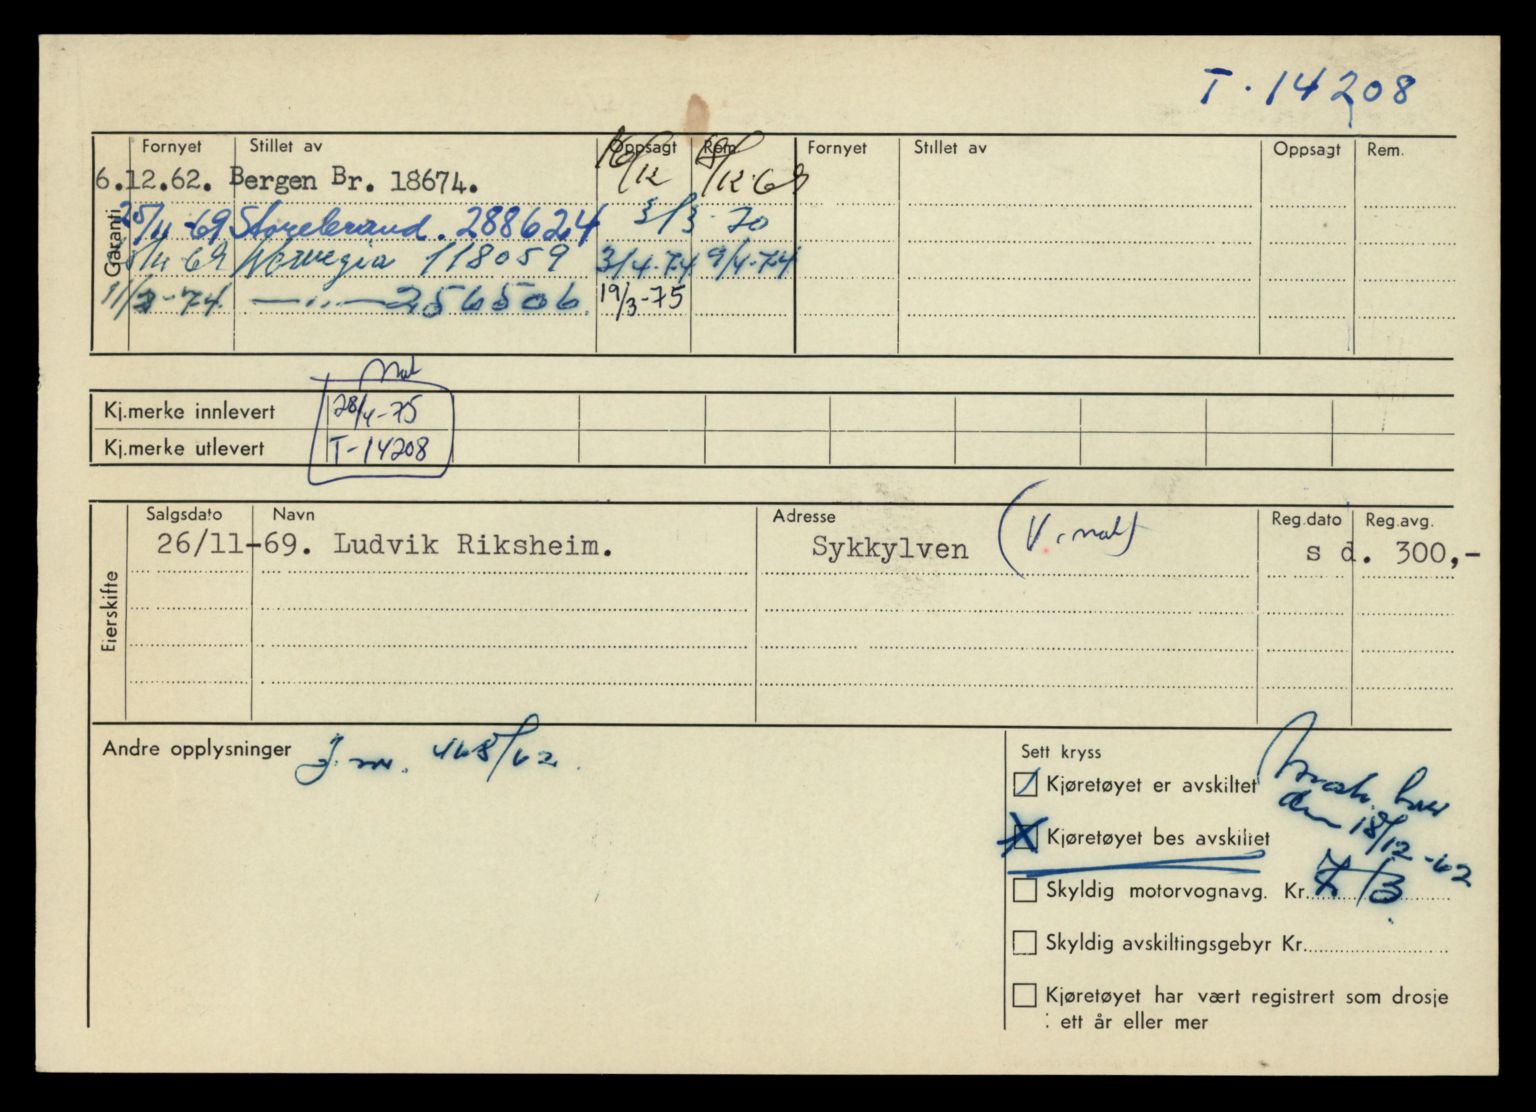 T. 14208
Fornyet Stillet av Oppsagt Rem. Fornyet Stillet av Oppsagt Rem.
Garanti
6.12.62. Bergen Br. 18674. 16/12 18/12-69
25/11-69 Storebrand. 288624 3/3-70
25/11-69 Norwegia 118059 3/4-74 9/4-74
11/3-74 — " — 256506. 19/3-75
Kj.merke innlevert 28/4-75
Kj.merke utlevert T-14208
Eierskifte
Salgsdato Navn Adresse Reg.dato Reg.avg.
26/11-69. Ludvik Riksheim. Sykkylven s d. 300,-
Andre opplysninger J.nr. 468/62.
Sett kryss
Kjøretøyet er avskiltet
den 18/12-62
X Kjøretøyet bes avskiltet
Skyldig motorvognavg. Kr. 7/3
Skyldig avskiltingsgebyr Kr.
Kjøretøyet har vært registrert som drosje
: ett år eller mer